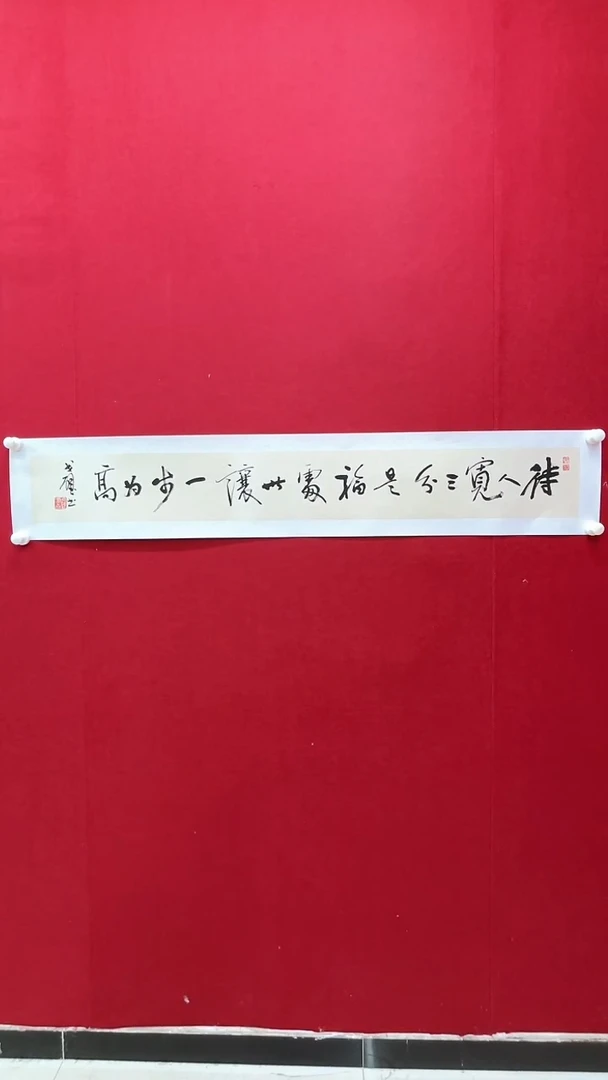 待人寬三分是福處世讓一步為高